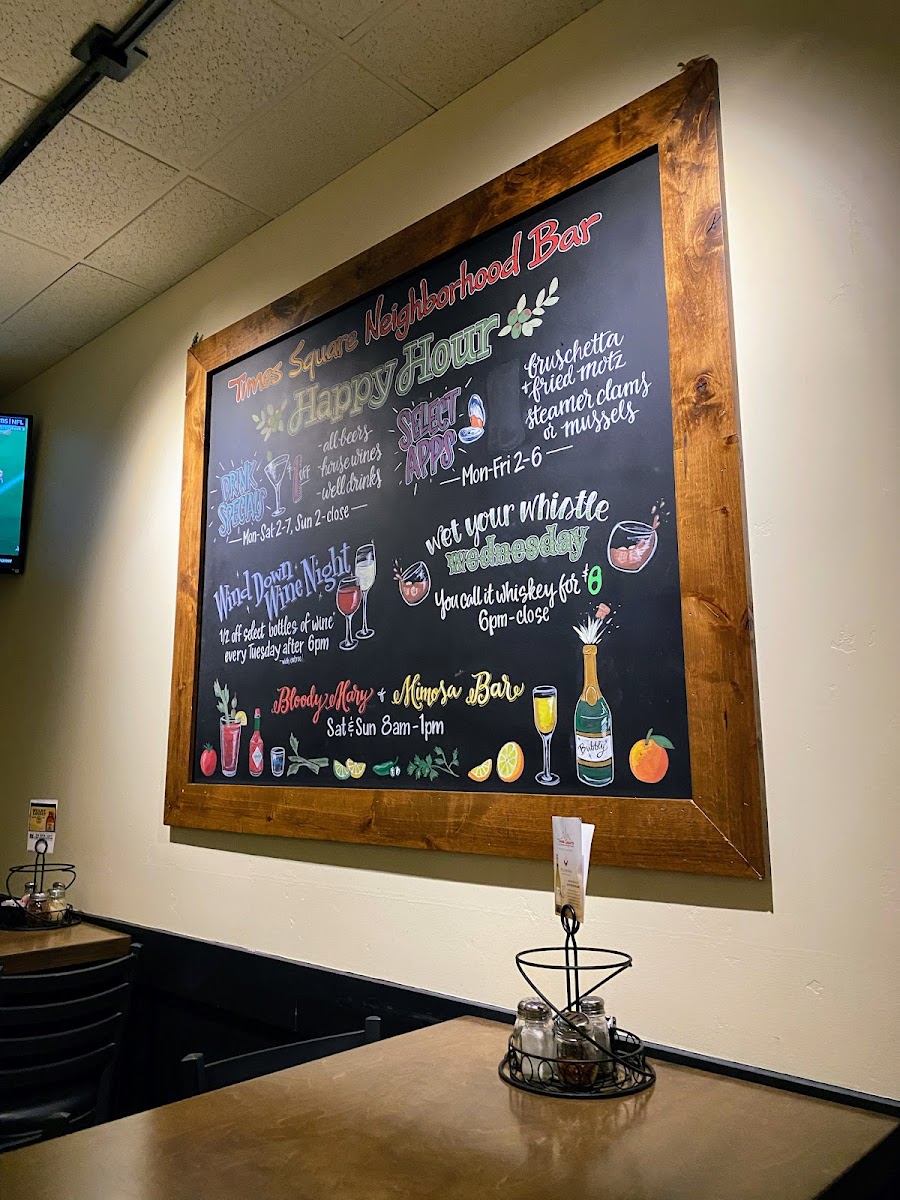 Times Square Neighborhood Bar
Happy Hour
DRINK
SPECIALS
$1 OFF
-all beers-
-house wines
-well drinks
Mon-Sat 2-7, Sun 2-close
SELECT
APPS
bruschetta
+ fried motz
steamer clams
or mussels
Mon-Fri 2-6
Wind Down
Wine Night
1/2 off select bottles of wine
every Tuesday after 6pm
wet your whistle
wednesday
You call it whiskey for $6
6pm-close
Bloody Mary + Mimosa Bar
Sat & Sun 8am-1pm
Bubbly
NFL